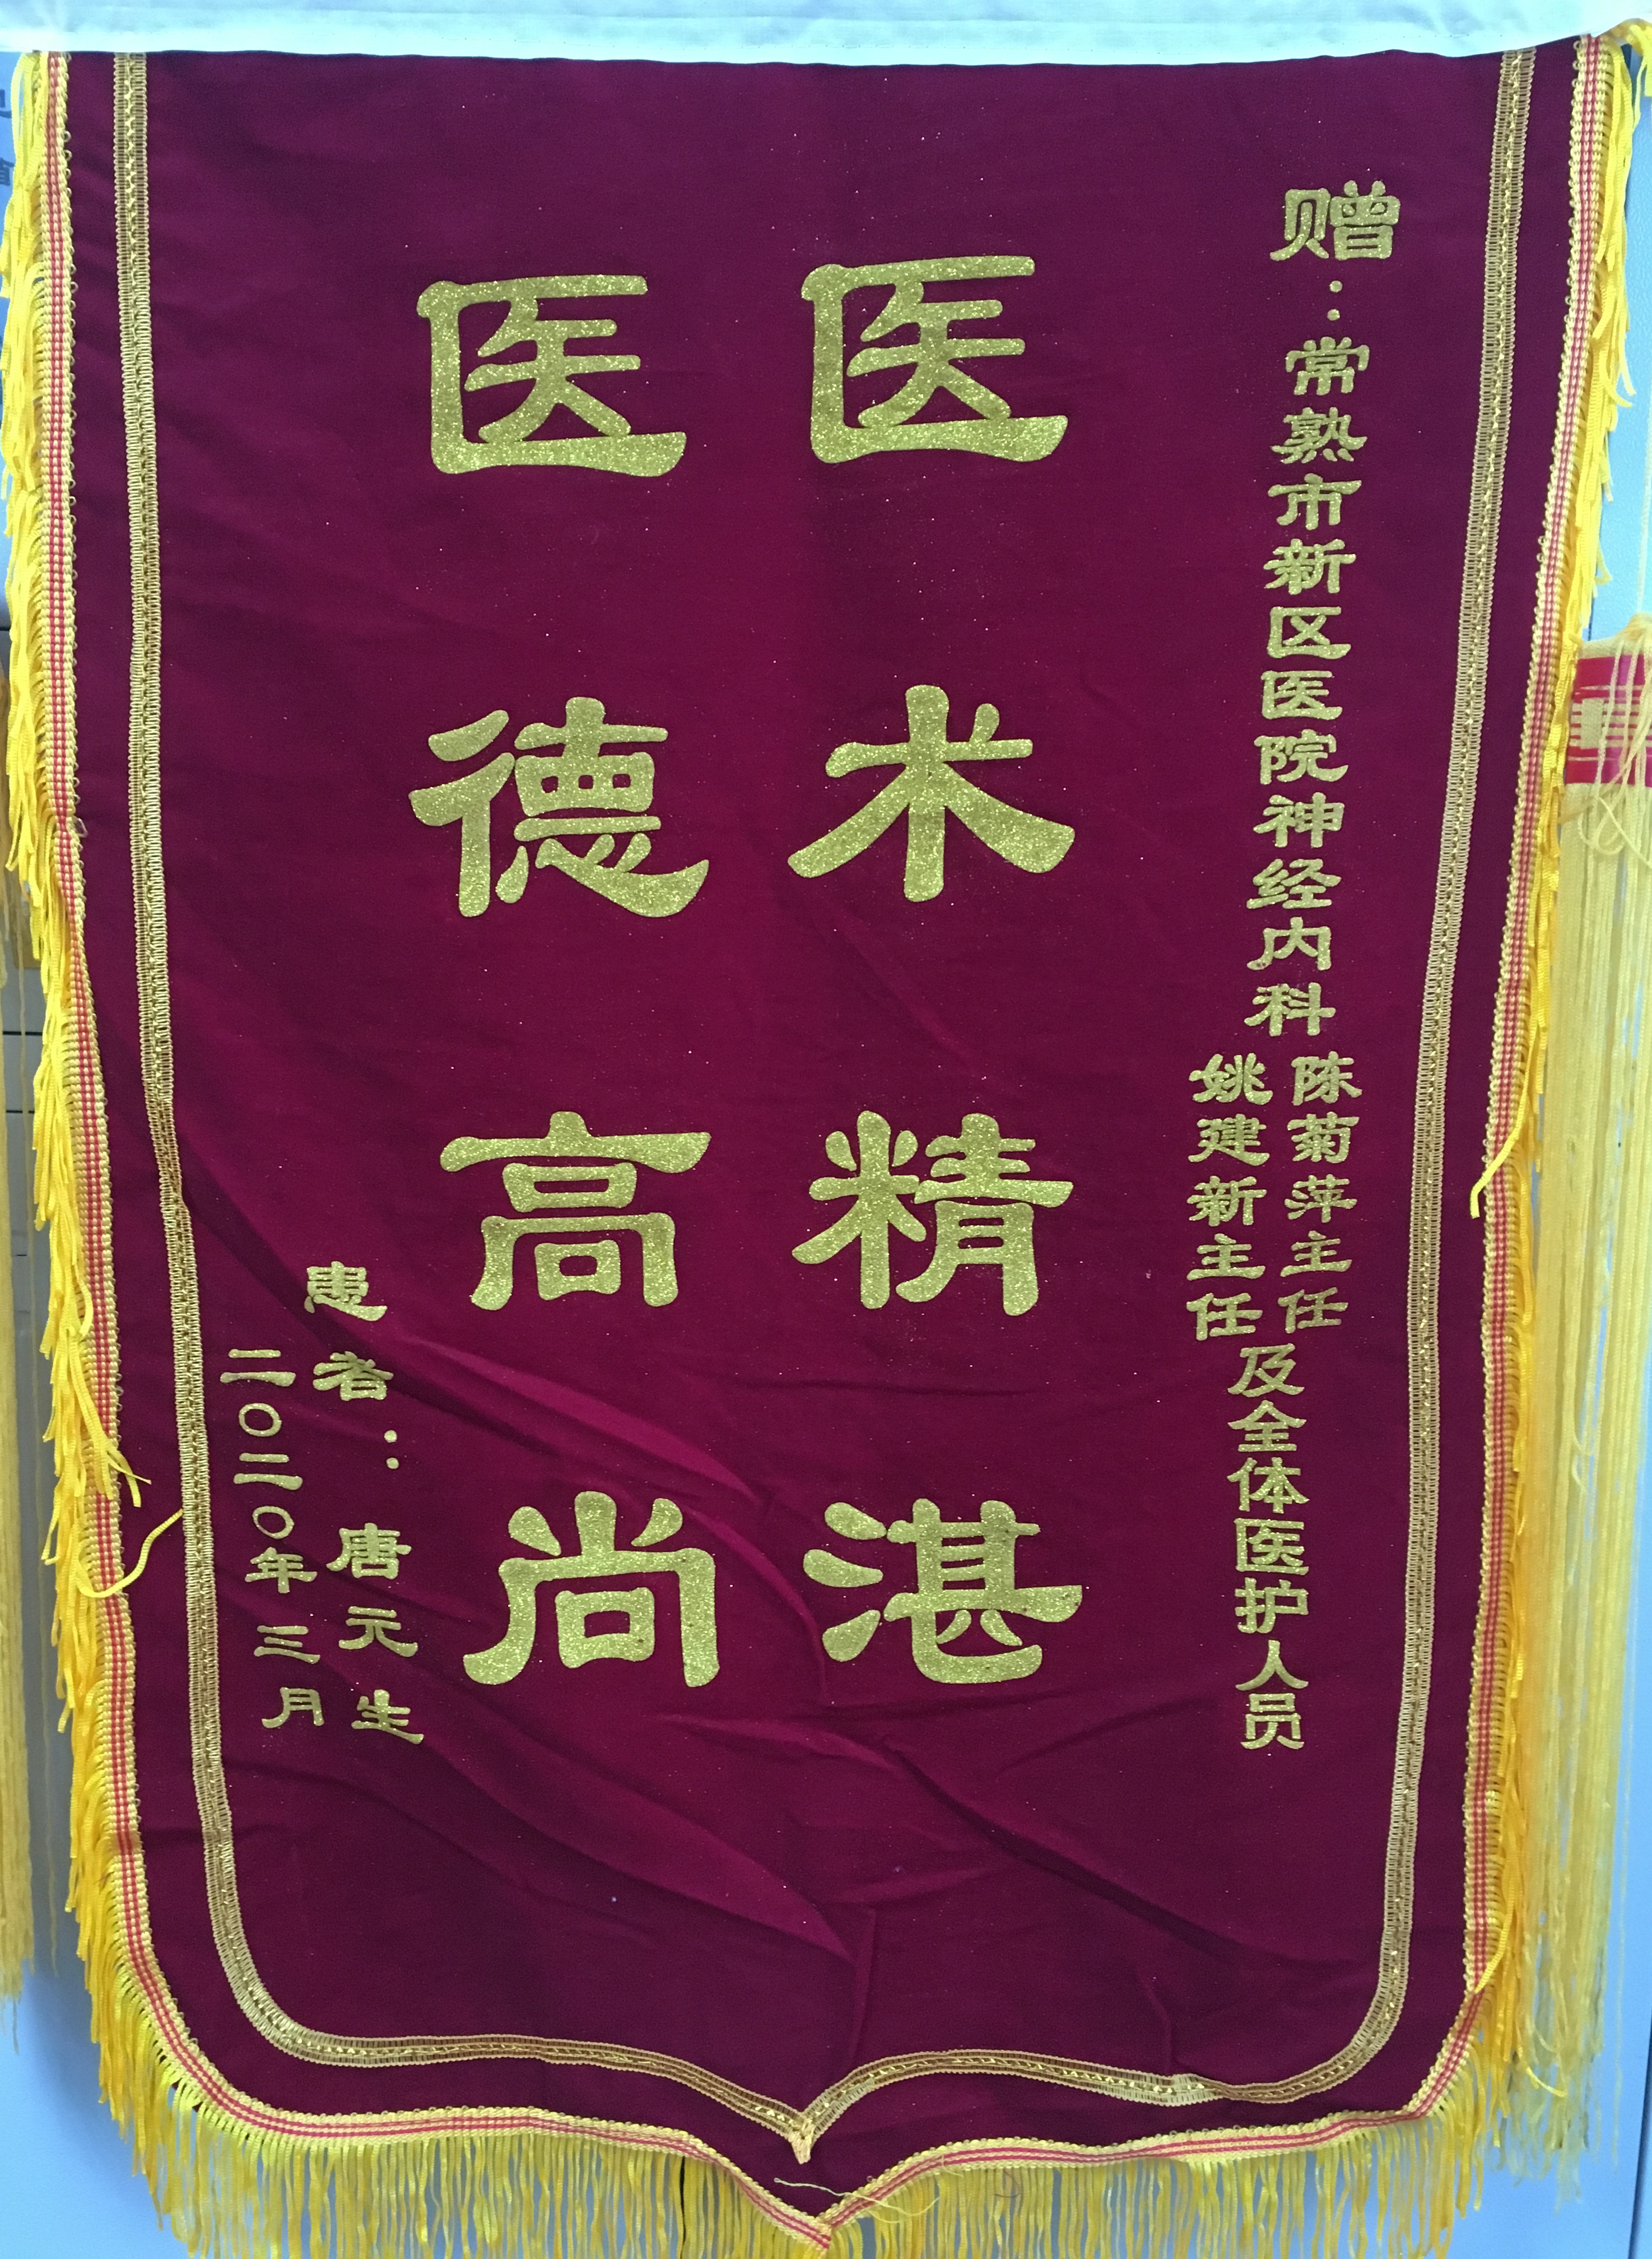 赠：常熟市新区医院神经内科
陈菊萍主任
姚建新主任
及全体医护人员
医术精湛
医德高尚
患者：唐元生
二〇二〇年三月